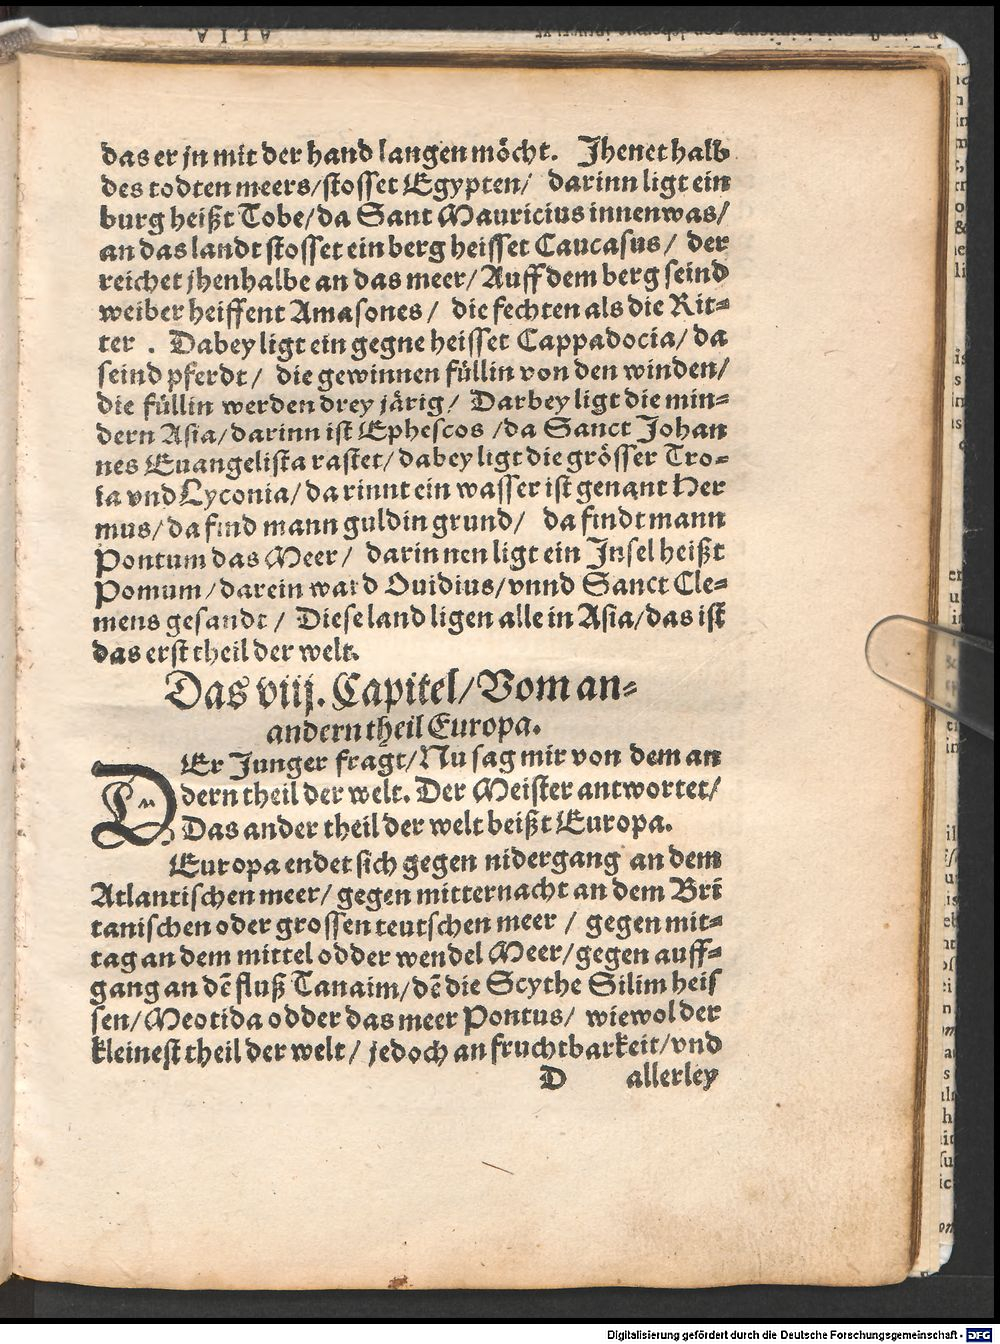 das er jn mit der hand langen möcht. Jhenethalb
des todten meers/stosset Egypten/ darinn ligt ein
burg heißt Tobe/da Sant Mauricius innen was/
an das landt stosset ein berg heisset Caucasus/ der
reichet jhenhalbe an das meer/Auff dem berg seind
weiber heissent Amasones/ die fechten als die Rit⸗
ter . Dabey ligt ein gegne heisset Cappadocia/ da
seind pferdt/ die gewinnen füllin von den winden/
die füllin werden drey järig/ Darbey ligt die min⸗
dern Asia/darinn ist Ephescos /da Sanct Johan
nes Euangelista rastet/dabey ligt die grösser Tro⸗
ia vnd Lyconia/da rinnt ein wasser ist genant Her
mus/da find mann guldin grund/ da findt mann
Pontum das Meer/ darinnen ligt ein Jnsel heißt
Pomum/darein ward Ouidius/vnnd Sanct Cle⸗
mens gesandt/ Diese land ligen alle in Asia/das ist
das erst theil der welt.
Das viij. Capitel/Vom an⸗
andern theil Europa.
DEr Junger fragt/Nu sag mir von dem an
dern theil der welt. Der Meister antwortet/
Das ander theil der welt heißt Europa.
Europa endet sich gegen nidergang an dem
Atlantischen meer/gegen mitternacht an dem Bri̅
tanischen oder grossen teutschen meer / gegen mit⸗
tag an dem mittel odder wendel Meer/gegen auff⸗
gang an dē fluß Tanaim/dē die Scythe Silim heis
sen/Meotida odder das meer Pontus/ wiewol der
kleinest theil der welt/ jedoch an fruchtbarkeit/vnd
D allerley
Digitalisierung gefördert durch die Deutsche Forschungsgemeinschaft - DFG